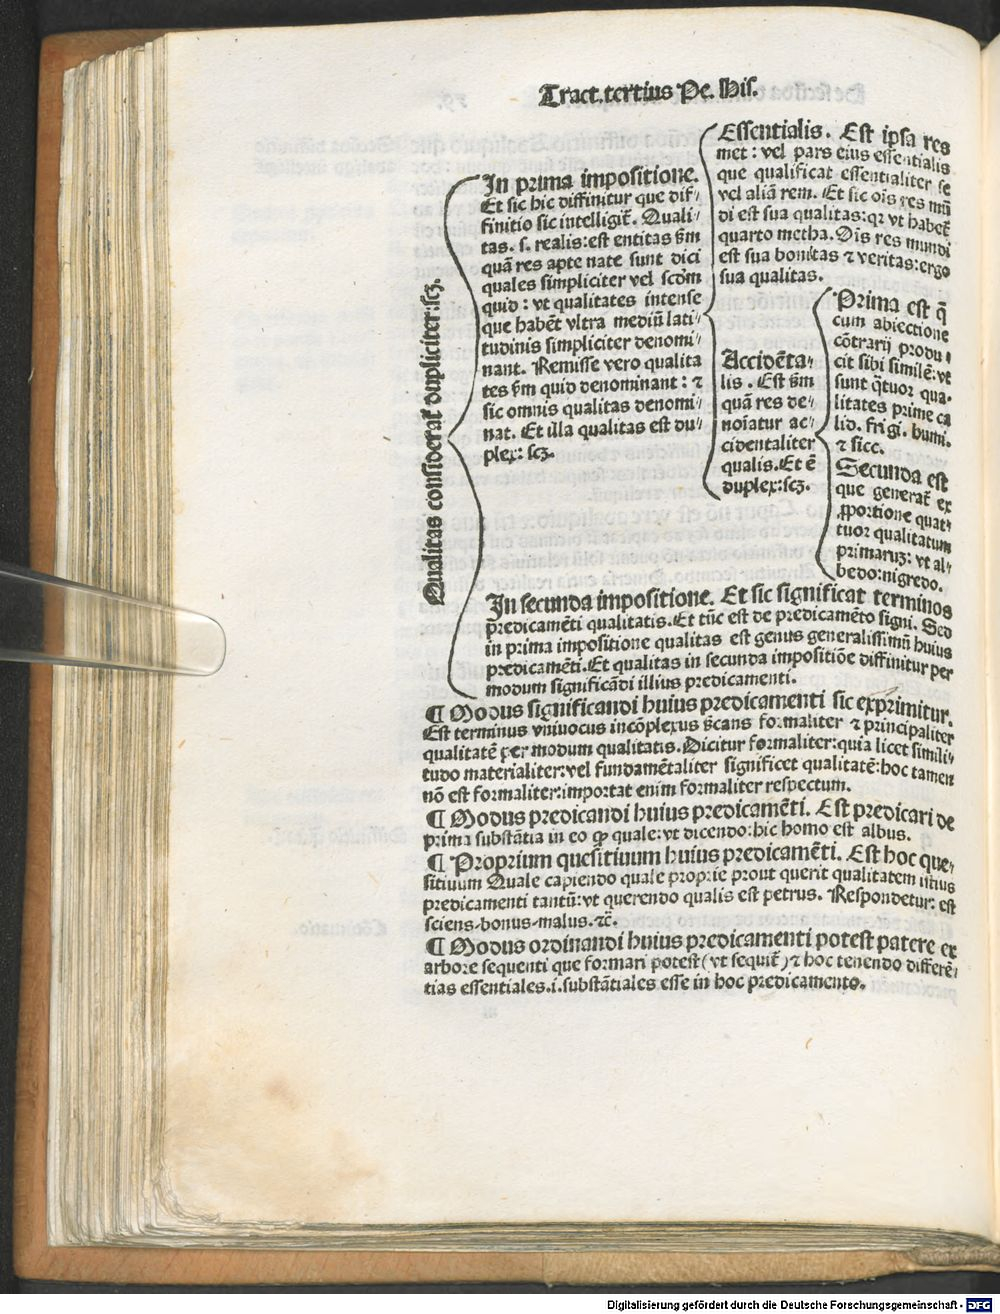 Tract. tertius Pe. His.
Qualitas considerat᷑ dupliciter: scꝫ.
In prima impositione.
Et sic hic diffinitur que dif⸗
finitio sic intelligit᷑. Quali⸗
tas. s. realis: est entitas ẜm
quã res apte nate sunt dici
quales simpliciter vel scðm
quid: vt qualitates intense
que habẽt vltra mediũ lati⸗
tudinis simpliciter denomi⸗
nant. Remisse vero qualita
tes ẜm quid denominant: ⁊
sic omnis qualitas denomi⸗
nat. Et illa qualitas est du⸗
plex: scꝫ.
Essentialis. Est ipsa res
met: vel pars eius essentialis
que qualificat essentialiter se
vel aliã rem. Et sic oĩs res mũ
di est sua qualitas: qꝛ vt habet᷑
quarto metha. Oĩs res mundi
est sua bonitas ⁊ veritas: ergo
sua qualitas.
Accidẽta⸗
lis. Est ẜm
quã res de⸗
noĩatur ac⸗
cidentaliter
qualis. Et ẽ
duplex: scꝫ.
Prima est q̃
cum abiectione
cõtrarij produ⸗
cit sibi similẽ: vt
sunt q̃tuor qua⸗
litates prime ca
lid. frigi. humi.
⁊ sicc.
Secunda est
que generat᷑ ex
ꝓportione quat⸗
tuor qualitatum
primarũ: vt al⸗
bedo: nigredo.
In secunda impositione. Et sic significat terminos
predicamẽti qualitatis. Et tũc est de predicamẽto signi. Sed
in prima impositione qualitas est genus generalissimũ huius
predicamẽti. Et qualitas in secunda impositiõe diffinitur per
modum significãdi illius predicamenti.
¶ Modus significandi huius predicamenti sic exprimitur.
Est terminus vniuocus incõplexus ẜcans formaliter ⁊ principaliter
qualitatẽ per modum qualitatis. Dicitur formaliter: quia licet simili⸗
tudo materialiter: vel fundamẽtaliter significet qualitatẽ: hoc tamen
nõ est formaliter: importat enim formaliter respectum.
¶ Modus predicandi huius predicamẽti. Est predicari de
prima substãtia in eo ꝙ quale: vt dicendo: hic homo est albus.
¶ Proprium quesitiuum huius predicamẽti. Est hoc que⸗
sitiuum Quale capiendo quale proprie prout querit qualitatem istius
predicamenti tantũ: vt querendo qualis est petrus. Respondetur: est
sciens⸗bonus⸗malus. ⁊c̃.
¶ Modus ordinandi huius predicamenti potest patere ex
arbore sequenti que formari potest (vt sequit᷑) ⁊ hoc tenendo differẽ⸗
tias essentiales. i. substãtiales esse in hoc predicamento.
Digitalisierung gefördert durch die Deutsche Forschungsgemeinschaft - DFG